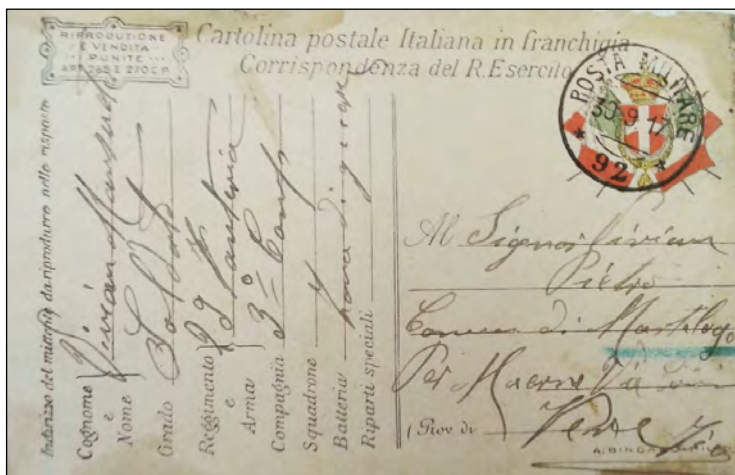 RIPRODUZIONE
E VENDITA
PUNITE
ART. 285 E 270 C.P.
Cartolina postale Italiana in franchigia
Corrispondenza del R. Esercito
POSTA MILITARE
30 9 17
92
Indirizzo del mittente da riprodurre nelle risposte
Cognome
e
Nome
Grado Soldato
Reggimento
e
Arma Fanteria
Compagnia 3ª Comp
Squadrone
Batteria Zona di guerra
Riparti speciali
Al Signor Vivian
Pietro
Comune di Martellago
Per Maerne
(Prov di Venezia